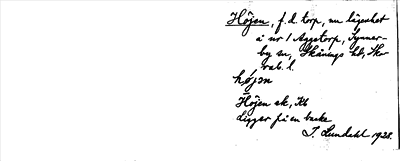 Höjen, f. d. torp, nu lägenhet
å nr 1 Aggetorp, Synner-
by sn, Skånings hd, Ska-
rab. l.
höjen
Höjen ek, Kb
Ligger på en backe
I. Lundahl 1928.